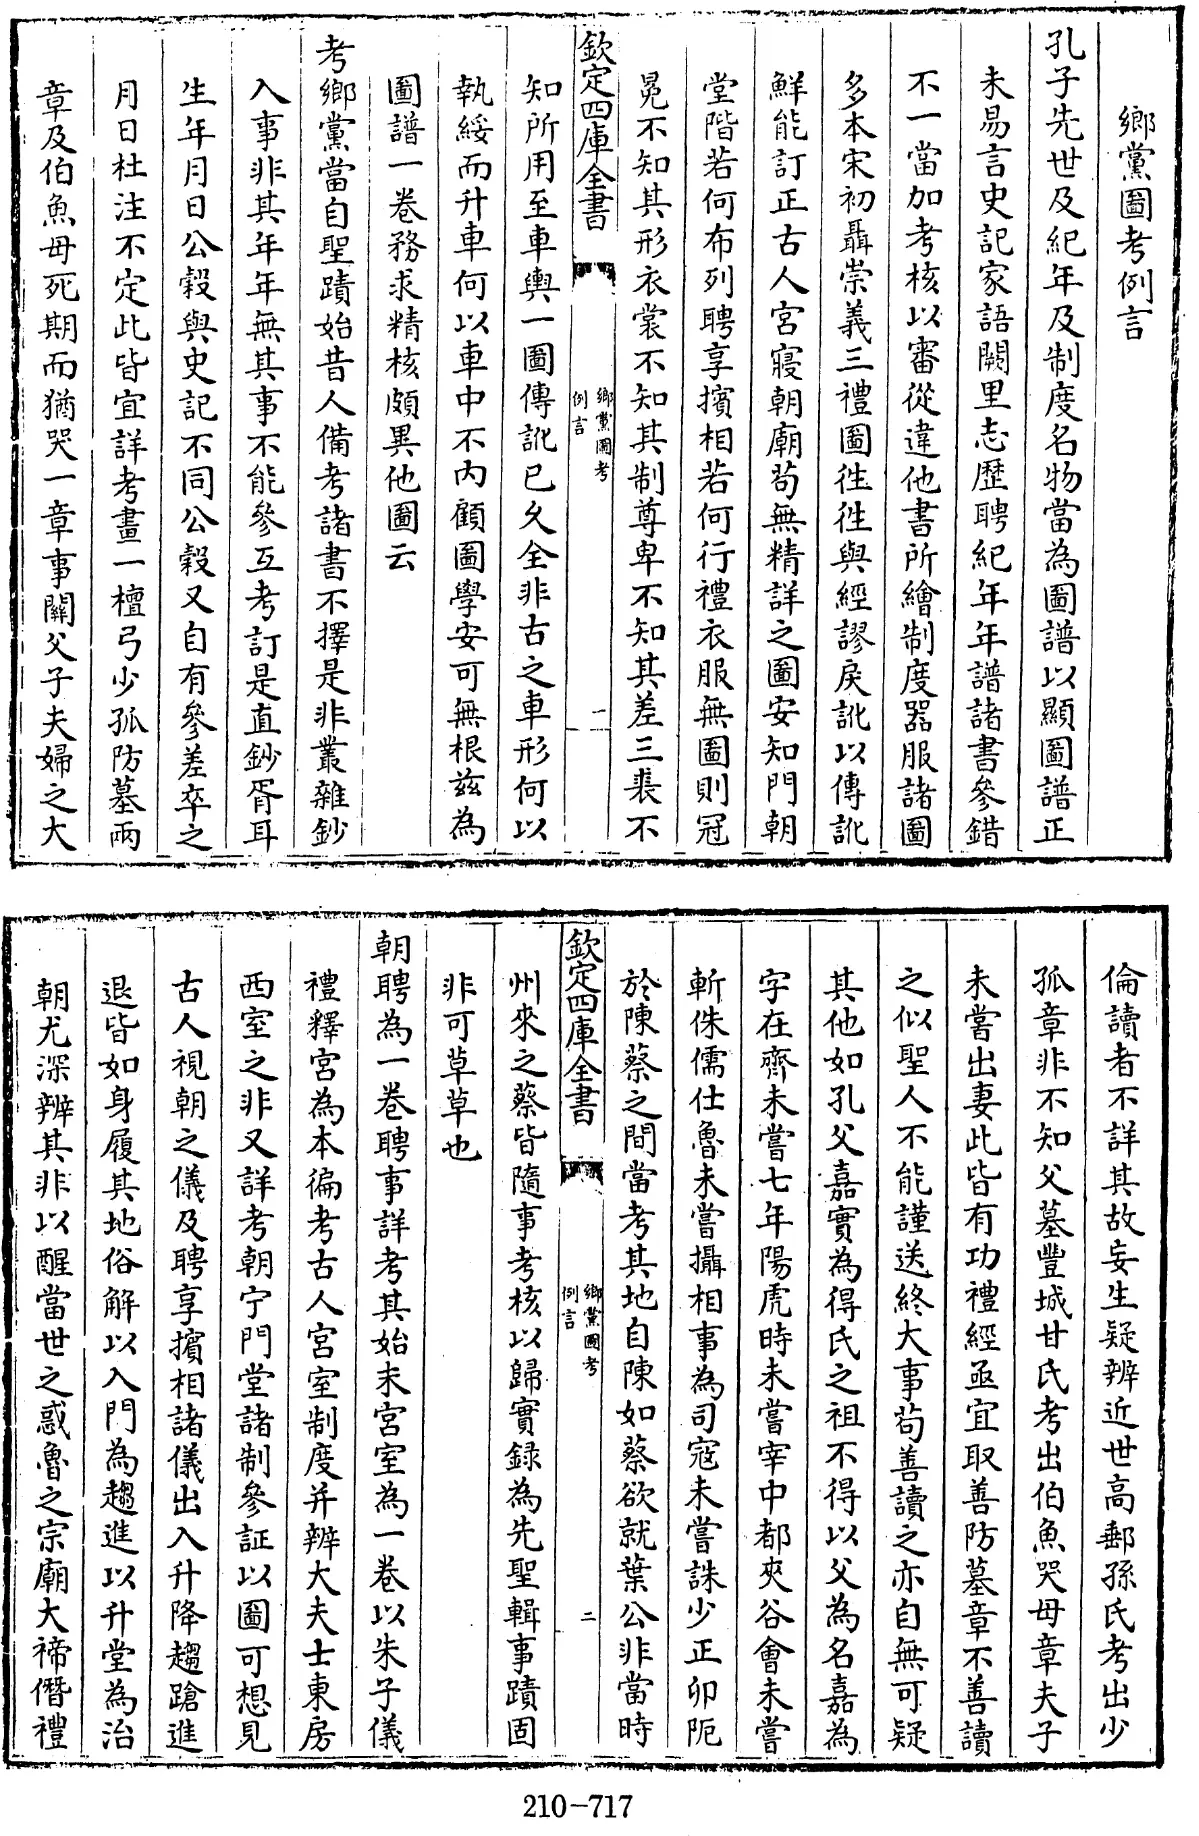 鄉黨圖考例言
孔子先世及紀年及制度名物當為圖譜以顯圖譜正
未易言史記家語闕里志歷聘紀年年譜諸書參錯
不一當加考核以審從違他書所繪制度器服諸圖
多本宋初聶崇義三禮圖徃徃與經謬戾訛以傳訛
鮮能訂正古人宮寢朝廟茍無精詳之圖安知門朝
堂階若何布列聘享擯相若何行禮衣服無圖則冠
冕不知其形衣裳不知其制尊卑不知其差三裘不
欽定四庫全書
鄉黨圖考
例言
一
知所用至車輿一圖傳訛已久全非古之車形何以
執綏而升車何以車中不内顧圖學安可無根兹為
圖譜一卷務求精核頗異他圖云
考鄉黨當自聖蹟始昔人備考諸書不擇是非叢雜鈔
入事非其年年無其事不能參互考訂是直鈔胥耳
生年月日公穀與史記不同公穀又自有參差卒之
月日杜注不定此皆宜詳考畫一檀弓少孤防墓兩
章及伯魚母死期而猶哭一章事關父子夫婦之大
倫讀者不詳其故妄生疑辨近世高郵孫氏考出少
孤章非不知父墓豐城甘氏考出伯魚哭母章夫子
未嘗出妻此皆有功禮經亟宜取善防墓章不善讀
之似聖人不能謹送終大事茍善讀之亦自無可疑
其他如孔父嘉實為得氏之祖不得以父為名嘉為
字在齊未嘗七年陽虎時未嘗宰中都夾谷會未嘗
斬侏儒仕魯未嘗攝相事為司寇未嘗誅少正卯阨
於陳蔡之間當考其地自陳如蔡欲就葉公非當時
欽定四庫全書
鄉黨圖考
例言
二
州來之蔡皆隨事考核以歸實録為先聖輯事蹟固
非可草草也
朝聘為一卷聘事詳考其始末宮室為一卷以朱子儀
禮釋宮為本徧考古人宮室制度并辨大夫士東房
西室之非又詳考朝宁門堂諸制參証以圖可想見
古人視朝之儀及聘享擯相諸儀出入升降趨蹌進
退皆如身履其地俗解以入門為趨進以升堂為治
朝尤深辨其非以醒當世之惑魯之宗廟大禘僭禮
210-717